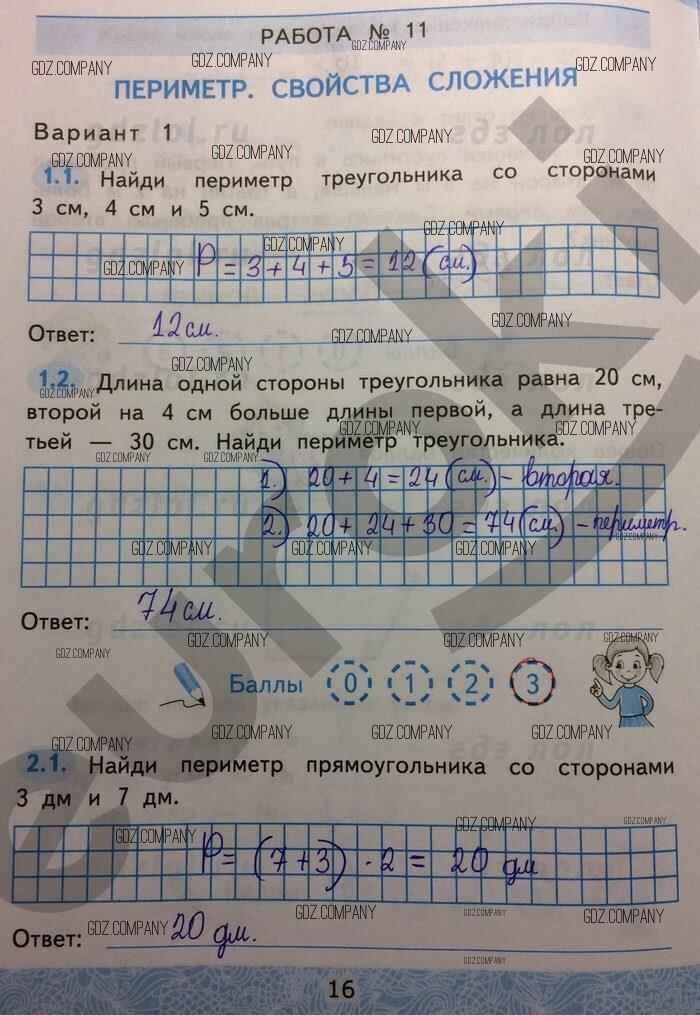 РАБОТА № 11
ПЕРИМЕТР. СВОЙСТВА СЛОЖЕНИЯ
Вариант 1
1.1. Найди периметр треугольника со сторонами
3 см, 4 см и 5 см.
P = 3 + 4 + 5 = 12 (см.)
Ответ: 12 см.
1.2. Длина одной стороны треугольника равна 20 см,
второй на 4 см больше длины первой, а длина тре-
тьей — 30 см. Найди периметр треугольника.
1.) 20 + 4 = 24 (см.) - вторая.
2.) 20 + 24 + 30 = 74 (см.) - периметр.
Ответ: 74 см.
Баллы 0 1 2 3
2.1. Найди периметр прямоугольника со сторонами
3 дм и 7 дм.
P = (7 + 3) · 2 = 20 дм
Ответ: 20 дм.
16
GDZ.COMPANY
euroki